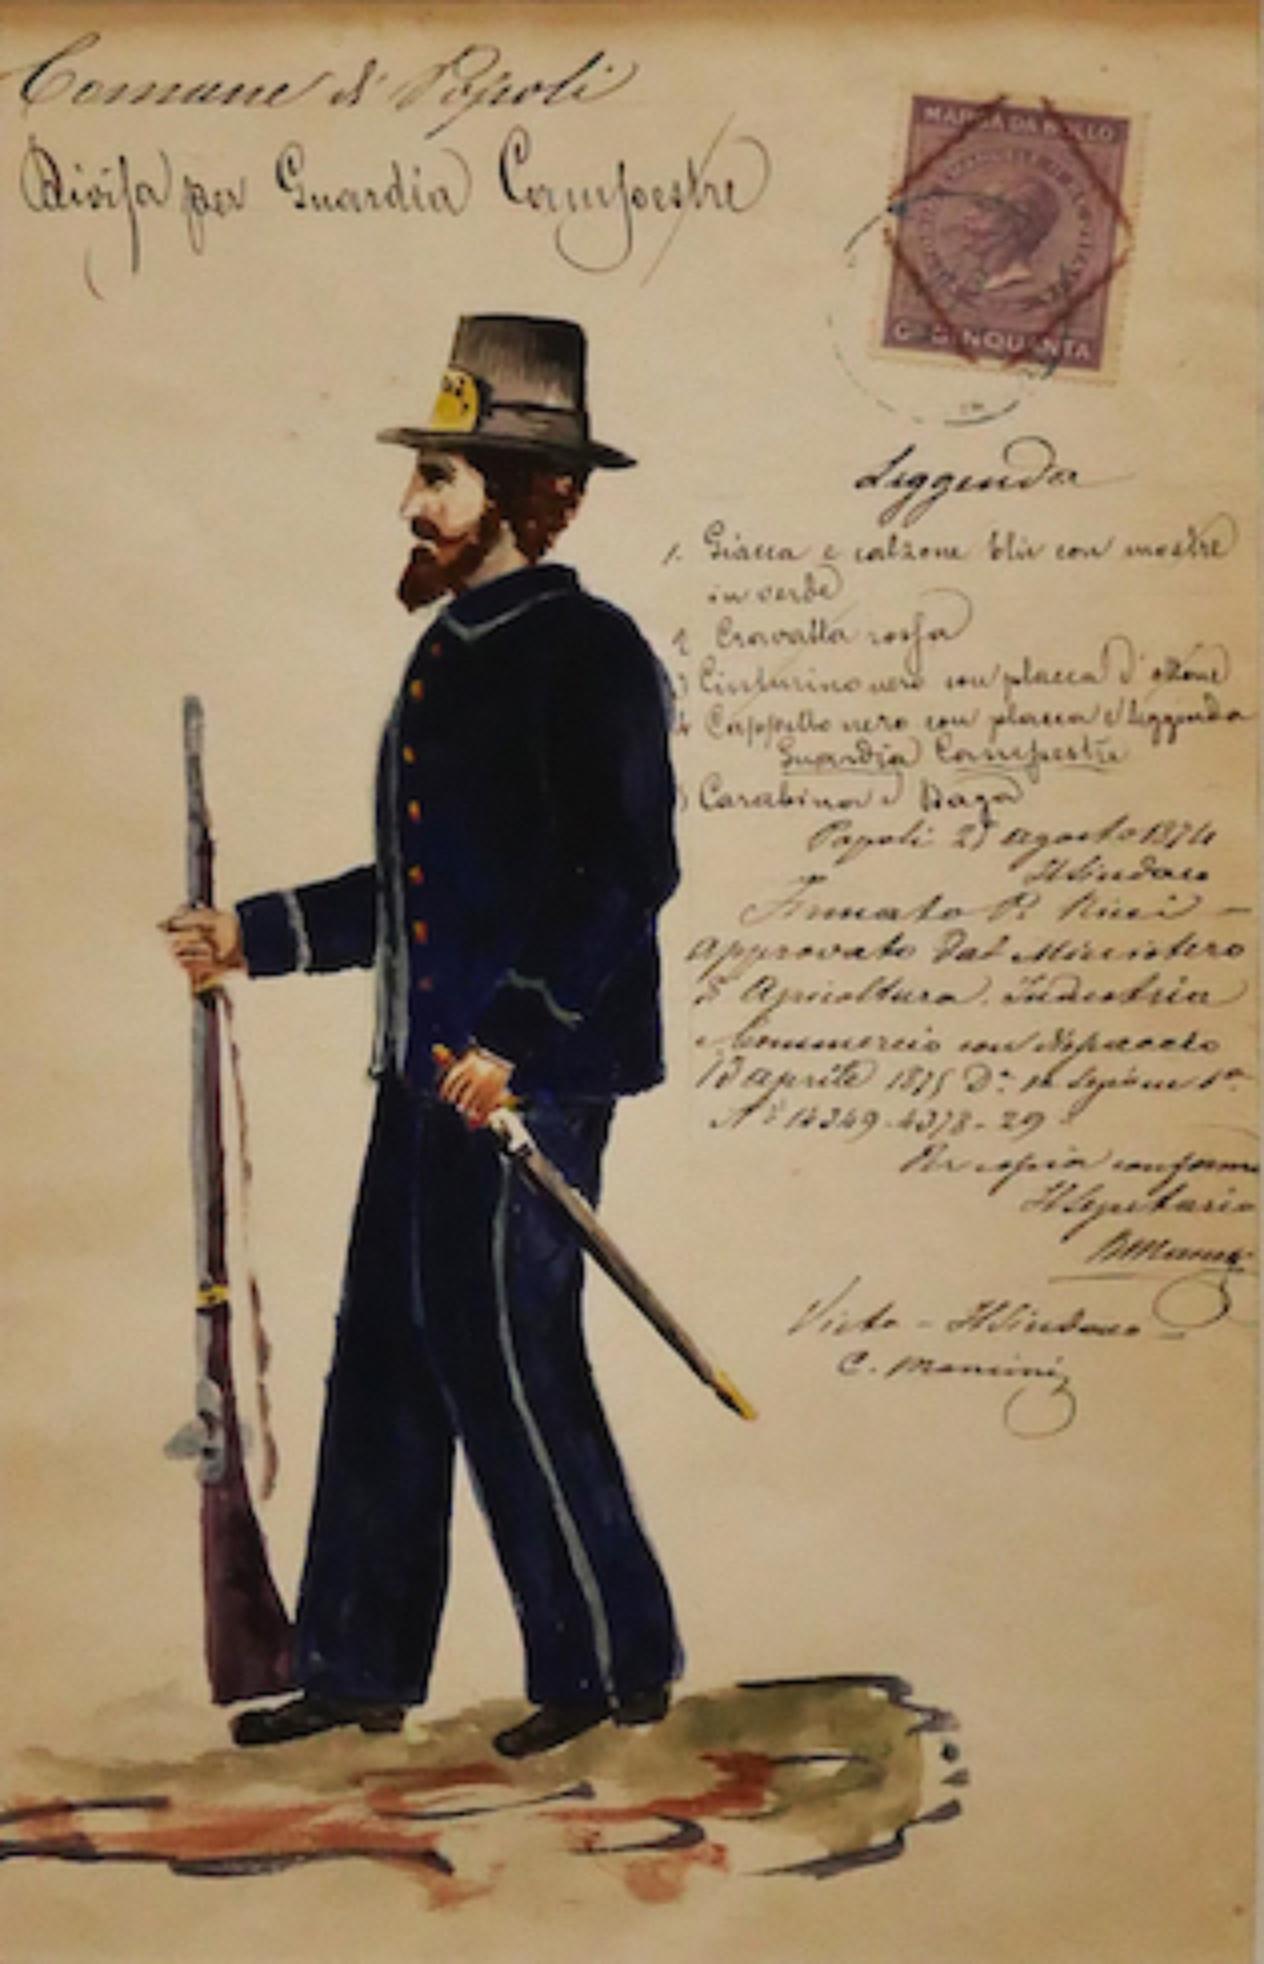 Comune di Popoli
Divisa per Guardia Campestre
MARCA DA BOLLO
C. CINQUANTA
Leggenda
1. Giacca e calzone bliu con mostre
in verde
2 Cravatta rossa
3) Cinturino nero con placca d'ottone
4 Cappello nero con placca e leggenda
Guardia Campestre
) Carabina e Daga
Popoli 25 agosto 1874
Il Sindaco
Firmato P. Ricci -
Approvato dal Ministero
d'Agricoltura. Industria
e Commercio con dispaccio
13 aprile 1875 D.ne 1a Sezione 1a
N° 14349-4378-29
Per copia conforme
Il Segretario
Visto - Il Sindaco
C. Mancini